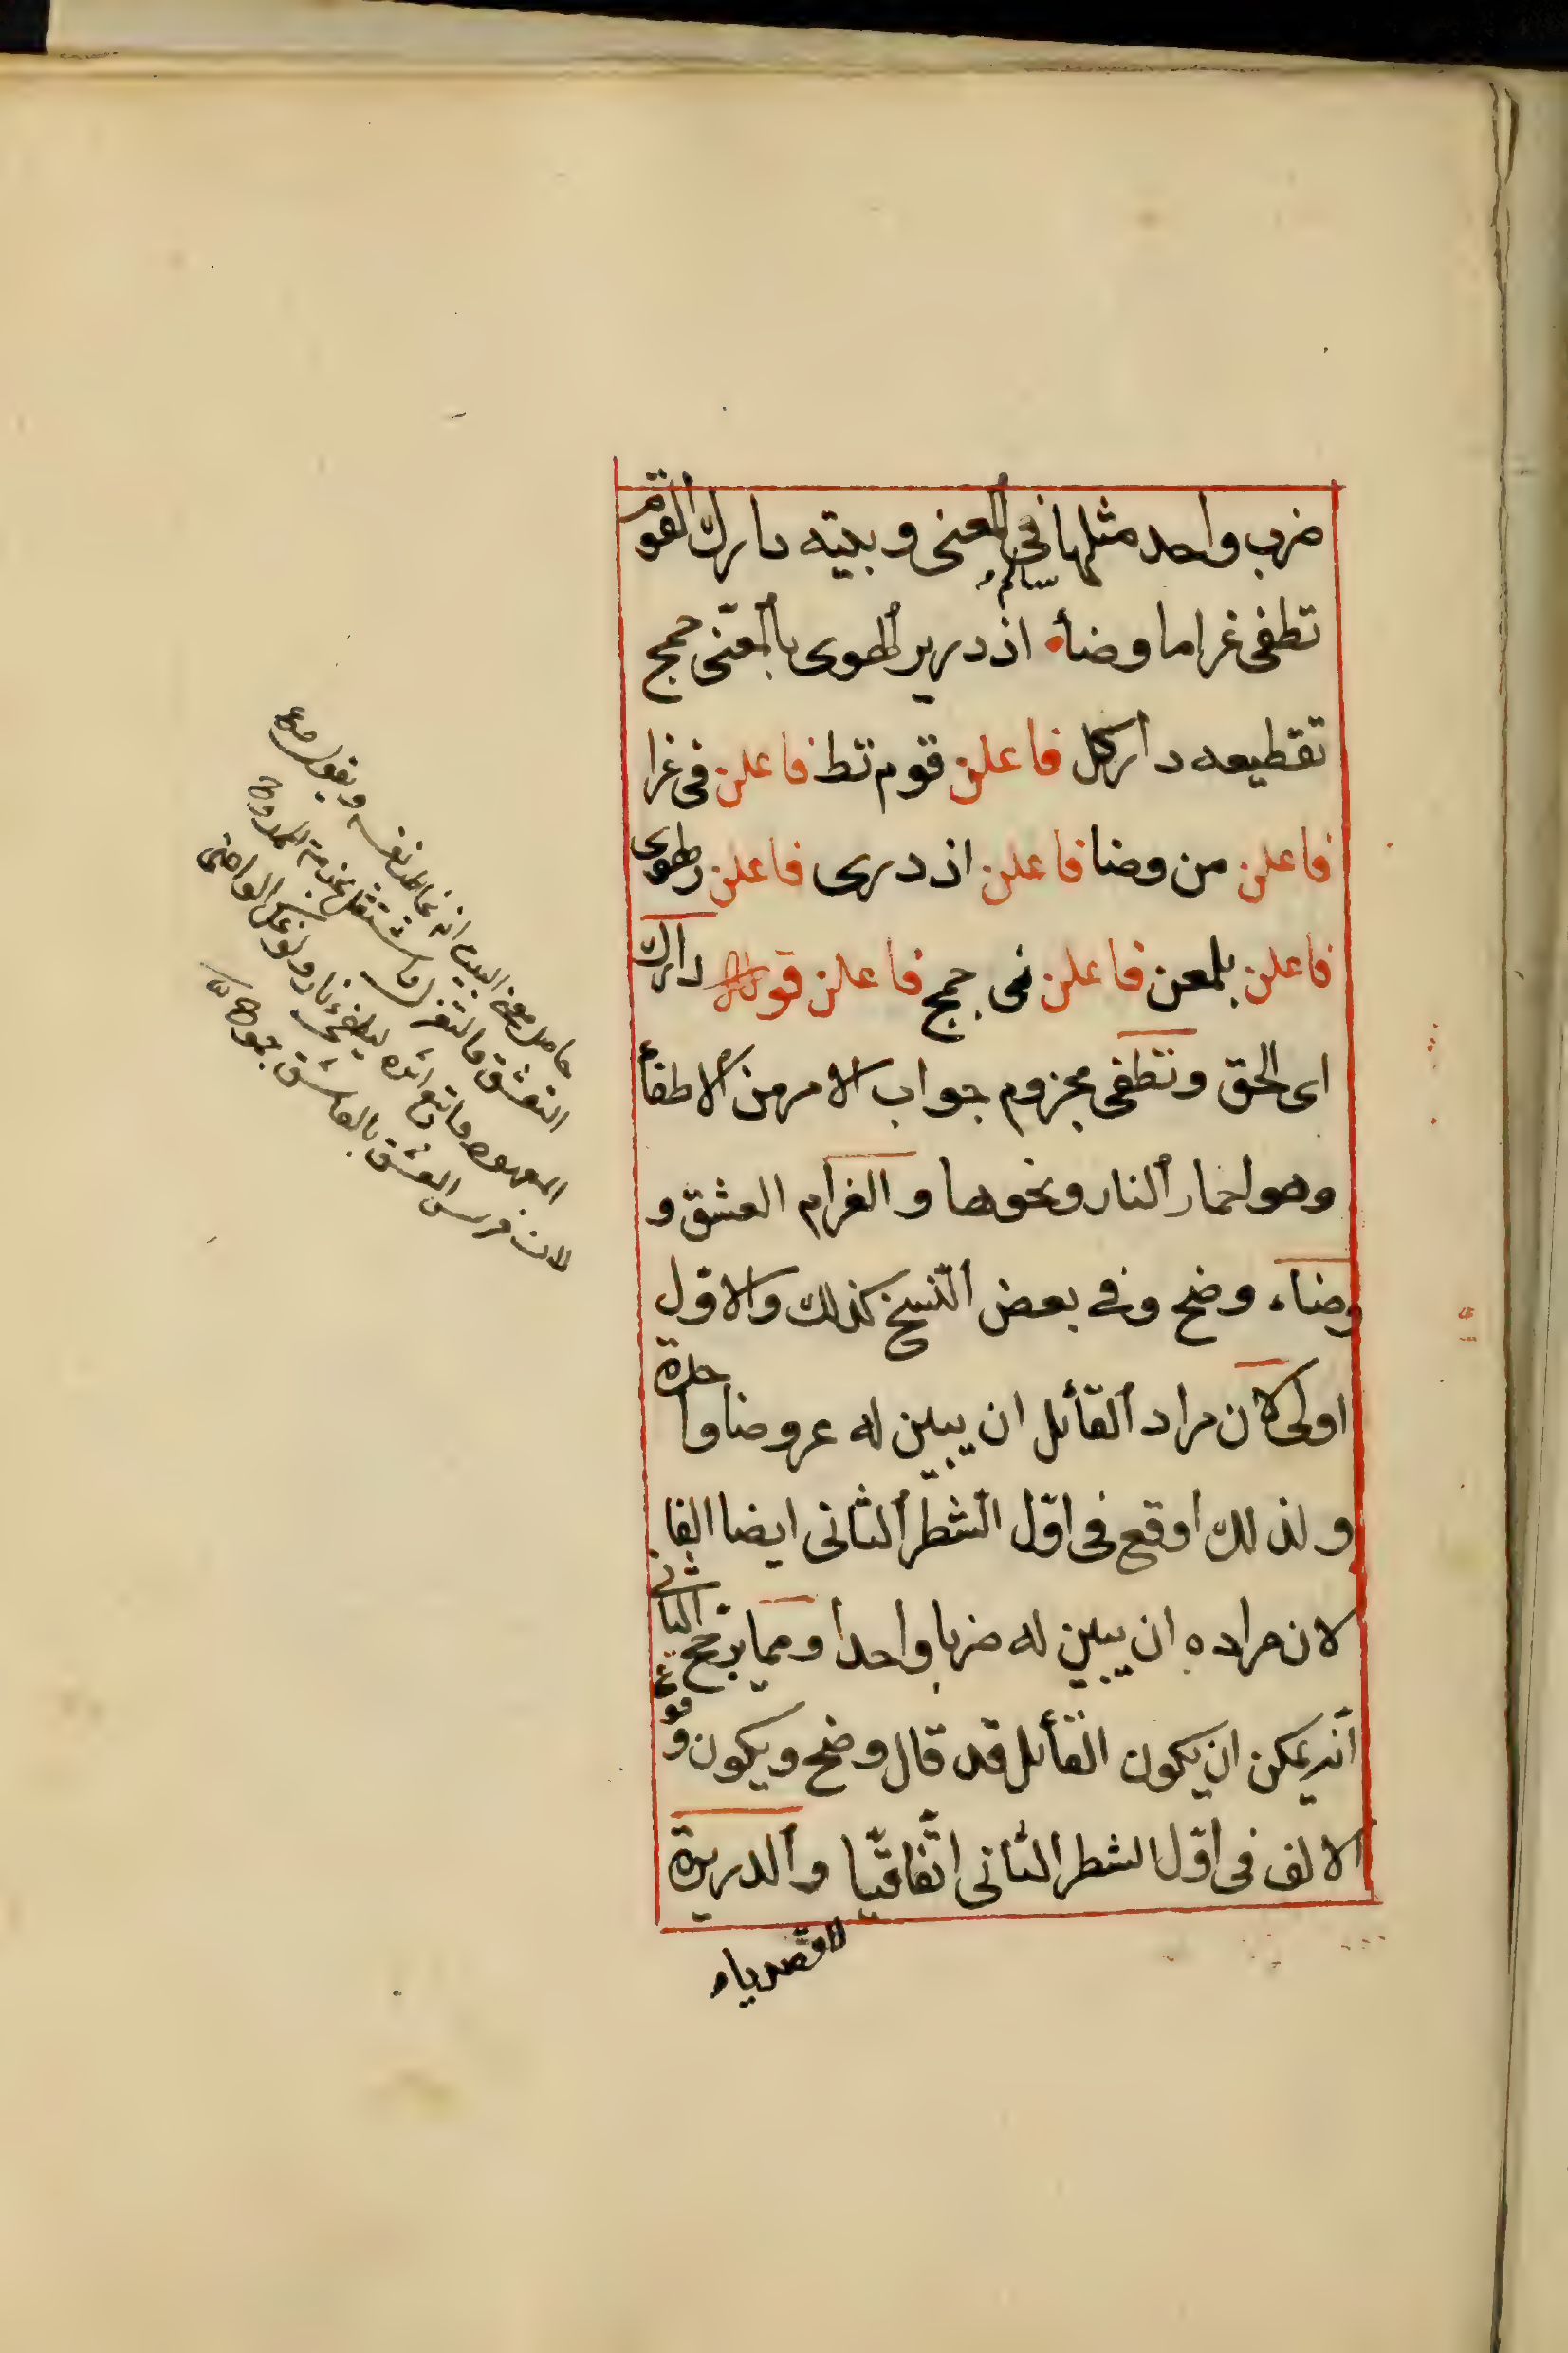 ضرب واحد مثلها فى المعنى وبيته دارك القوم
سالم
تطفى غراما وضاء اذ درير الهوى بالمعنى جمح
تقطيعه دأركل فاعلن قوم تط فاعلن فى غرا
فاعلن من وضا فاعلن اذ درى فاعلن رلهوى
فاعلن بلمعن فاعلن نى جمح فاعلن قوله دارك
اى الحق وتطفى مجزوم جواب الامر من الاطفاء
وهو اخماد النار ونحوها والغرام العشق و
وضاء وضح وفى بعض النسخ كذلك والاول
اولى لان مراد القائل ان يبين له عروضا واحدة
ولذلك اوقع فى اول الشطر الثانى ايضا الفا
لان مراده ان يبين له ضربا واحدا ومما يرجح الثانى
انه يمكن ان يكون القائل قد قال وضح ويكون وقوع
الالف فى اول الشطر الثانى اتفاقيا والدريرة
حاصل معنى البيت انه يخاطب نفسه ويقول دع
التعشق والتغزل واشتغل بخدمة الممدوح
المعهود واتبع اثره ليطفئ نار ولوعك الواضحى
لان فرس العشق بالعاشق جموح